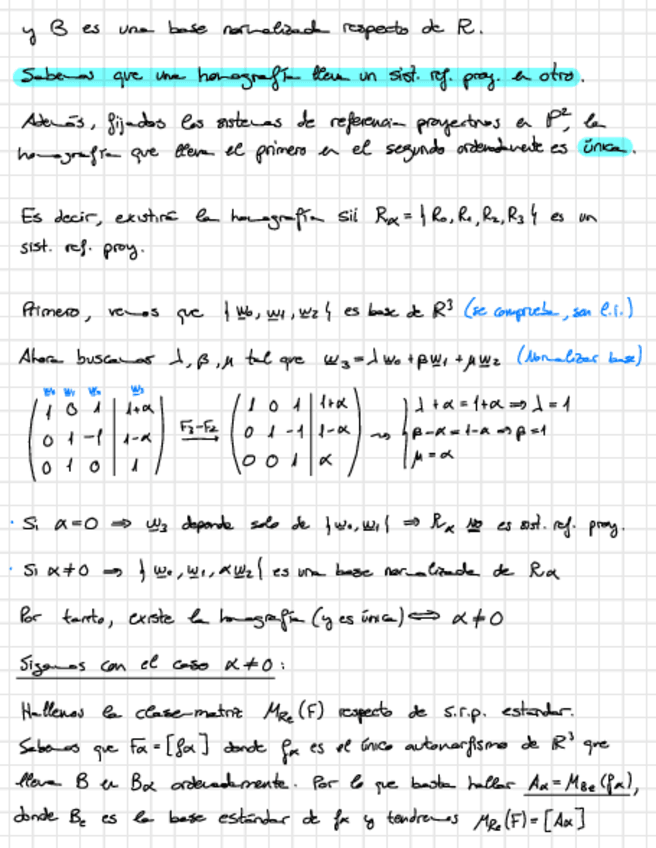 y B es una base normalizada respecto de R.
Sabemos que una homografía lleva un sist. ref. proy. en otro.
Además, fijados los sistemas de referencia proyectivos en P², la
homografía que lleva el primero en el segundo ordenadamente es única.
Es decir, existirá la homografía sii Rα = {R₀, R₁, R₂, R₃} es un
sist. ref. proy.
Primero, vemos que {w₀, w₁, w₂} es base de R³ (se comprueba, son l.i.)
Ahora buscamos λ, β, μ tal que w₃ = λw₀ + βw₁ + μw₂ (Normalizar base)
w₀ w₁ w₂ w₃
( 1 0 1 | 1+α ) ( 1 0 1 | 1+α ) { λ + α = 1+α ⇒ λ = 1
( 0 1 -1 | 1-α ) F₃-F₂ → ( 0 1 -1 | 1-α ) ⇝ { β - α = 1-α ⇒ β = 1
( 0 1 0 | 1 ) ( 0 0 1 | α ) { μ = α
· Si α = 0 ⇒ w₃ depende solo de {w₀, w₁} ⇒ Rα no es sist. ref. proy.
· Si α ≠ 0 ⇒ {w₀, w₁, αw₂} es una base normalizada de Rα
Por tanto, existe la homografía (y es única) ⇔ α ≠ 0
Sigamos con el caso α ≠ 0:
Hallemos la clase-matriz M_Re(F) respecto de s.r.p. estándar.
Sabemos que Fα = [fα] donde fα es el único automorfismo de R³ que
lleva B en Bα ordenadamente. Por lo que basta hallar Aα = M_Be(fα),
donde Be es la base estándar de fα y tendremos M_Re(F) = [Aα]